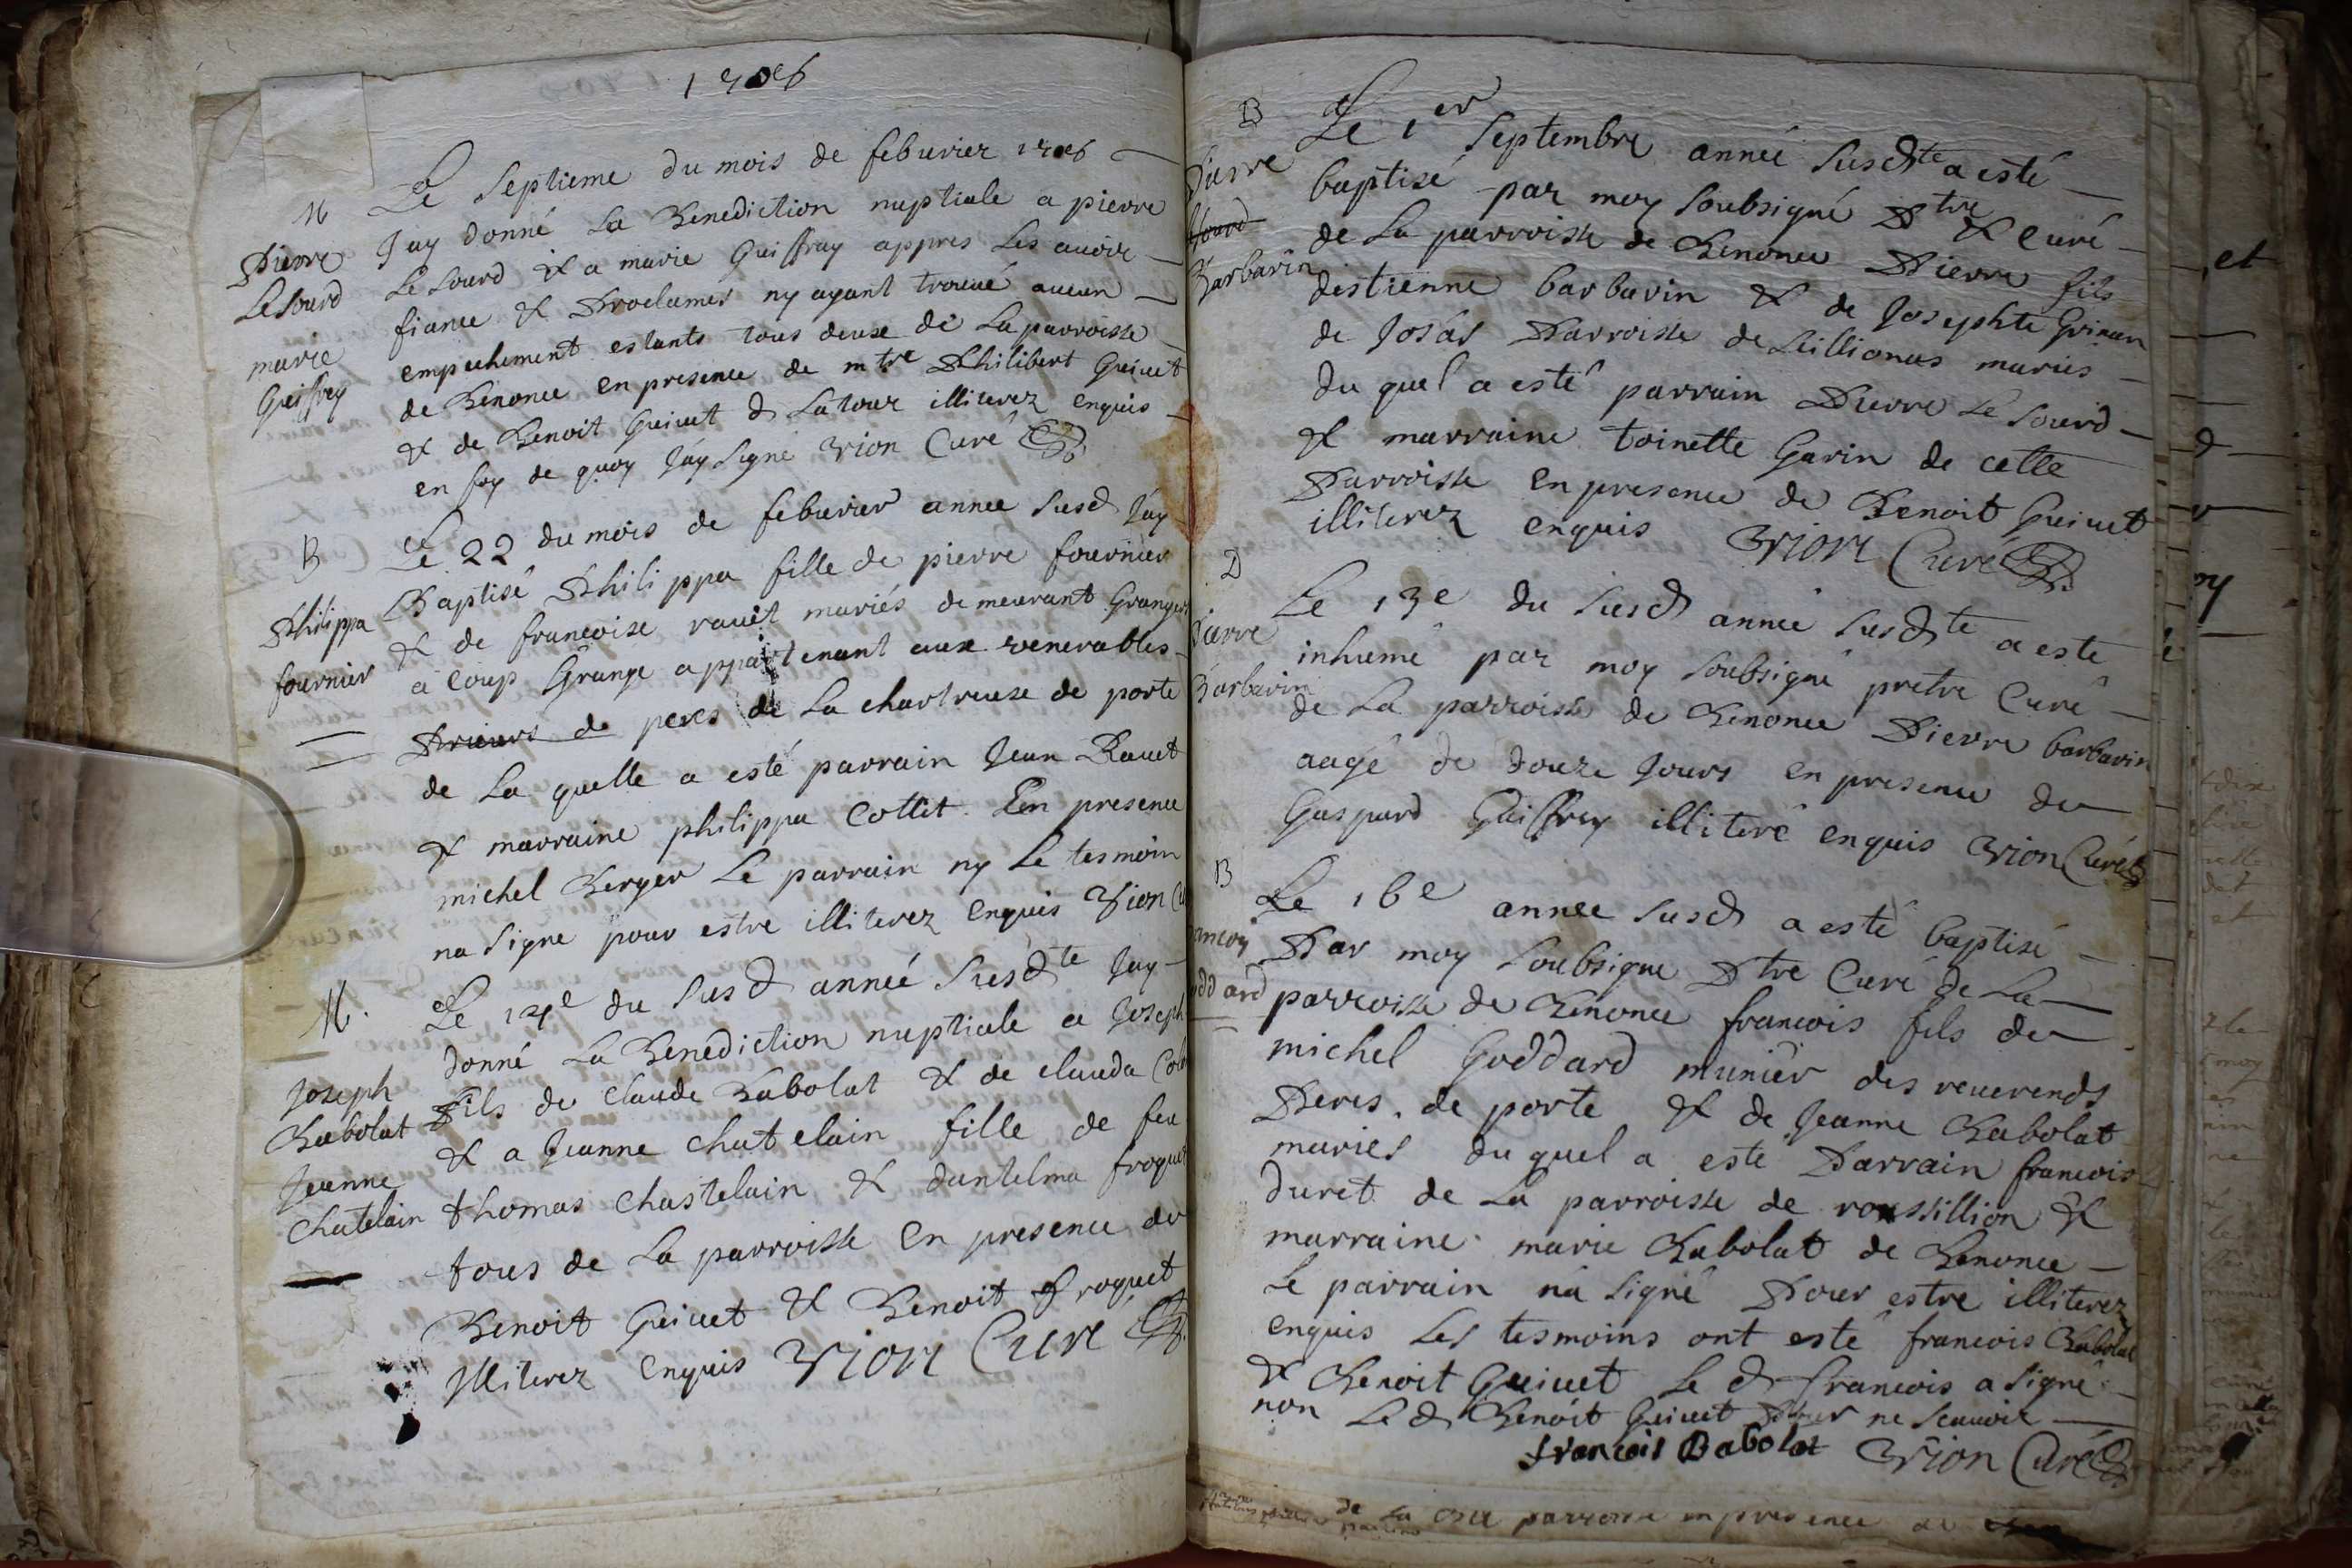 1706
Le Septieme du mois de feburier 1706
M
Jay donné La Benediction nuptiale a pierre
Pierre
Lesourd
Le sourd & a marie Guiffray appres Les avoir
fiancé & Proclamés ny ayant trouué aucun
marie
Guiffrey
empechement estants tous deux de La parroisse
de Benonce en presence de mtre Philibert Guiuet
& de Benoit Guiuet d Latour illiterez enquis
en foy de quoy Jay Signé Vion Curé
B
Le 22 du mois de feburier annee Susd Jay
Philippa
fournier
Baptisé Philippa fille de pierre fournier
& de francoise rauet mariés demeurant Grangers
a Coup Grange appartenant aux venerables
Prieurs de peres de La chartreuse de porte
de La quelle a esté parrain Jean Rauet
& marraine philippa Collet En presence
michel Berger Le parrain ny Le tesmoin
na Signe pour estre illiterez Enquis Vion Cu
M.
Le 14e du Susd année Susdte Jay
donné La Benediction nuptiale a Joseph
Joseph
Babolat
fils de Claude Babolat & de Clauda
& a Jeanne Chatelain fille de feu
Jeanne
Chatelain
thomas Chastelain & dantelma froquet
tous de La parroisse En presence de
Benoit Guiuet & Benoit froquet
Illiterez Enquis Vion Curé
B
Le 1er Septembre année Susdte a esté
Pierre
Barbarin
baptisé par moy Soubsigné Ptre & Curé
de La parroisse de Benonce Pierre fils
destienne barbarin & de Josephte Grinan
de Josas Parroisse de Seillionas mariés
du quel a esté parrain Pierre Le Sourd
& marraine toinette Garin de cette
Parroisse En presence de Benoit Guiuet
illiterez enquis Vion Curé
D
Pierre
Barbarin
Le 13e du Susd année Susdte a esté
inhumé par moy Soubsigné pretre Curé
de La parroisse de Benonce Pierre barbarin
aagé de douze Jours en presence de
Gaspard Guiffrey illiteré enquis Vion Curé
B
Le 16e annee Susd a esté baptisé
ancois
oddard
Par moy Soubsigne Ptre Curé de La
parroisse de Benonce francois fils de
michel Goddard munier des reuerends
Peres de porte & de Jeanne Babolat
mariés du quel a esté Parrain francois
duret de La parroisse de roussillion &
marraine marie Babolat de Benonce
Le parrain na Signé Pour estre illiterez
enquis Les tesmoins ont esté francois Babolat
& Benoit Guiuet Le d francois a Signé
non Le d Benoit Guiuet Pour ne Scauoir
francois Babolat Vion Curé
de La parroisse en presence de